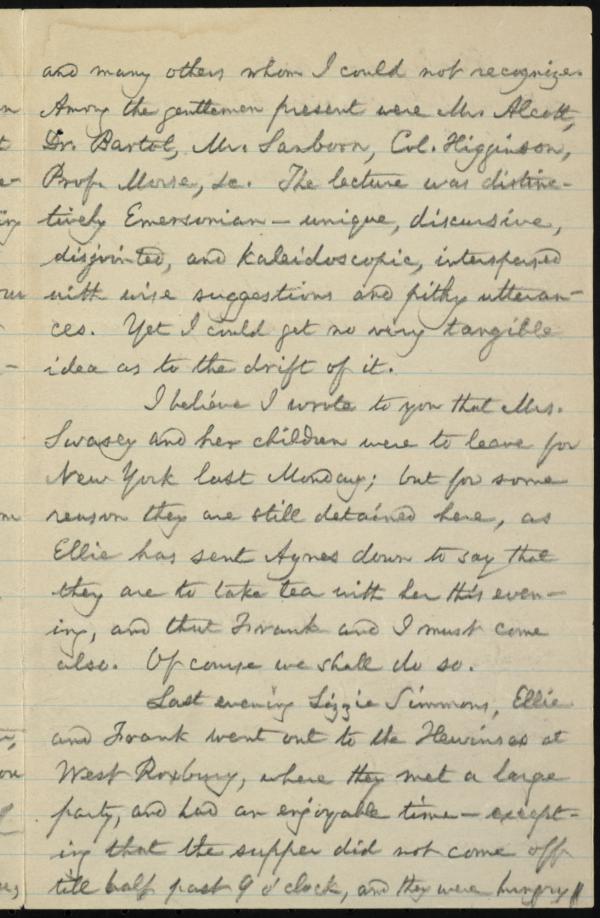 and many others whom I could not recognize.
Among the gentlemen present were Mr. Alcott,
Dr. Bartol, Mr. Sanborn, Col. Higginson,
Prof. Morse, &c. The lecture was distinc-
tively Emersonian — unique, discursive,
disjointed, and kaleidoscopic, interspersed
with wise suggestions and pithy utteran-
ces. Yet I could get no very tangible
idea as to the drift of it.
I believe I wrote to you that Mrs.
Swasey and her children were to leave for
New York last Monday; but for some
reason they are still detained here, as
Ellie has sent Agnes down to say that
they are to take tea with her this even-
ing, and that Frank and I must come
also. Of course we shall do so.
Last evening Lizzie Simmons, Ellie
and Frank went out to the Hewinses at
West Roxbury, where they met a large
party, and had an enjoyable time — except-
ing that the supper did not come off
till half past 9 o'clock, and they were hungry